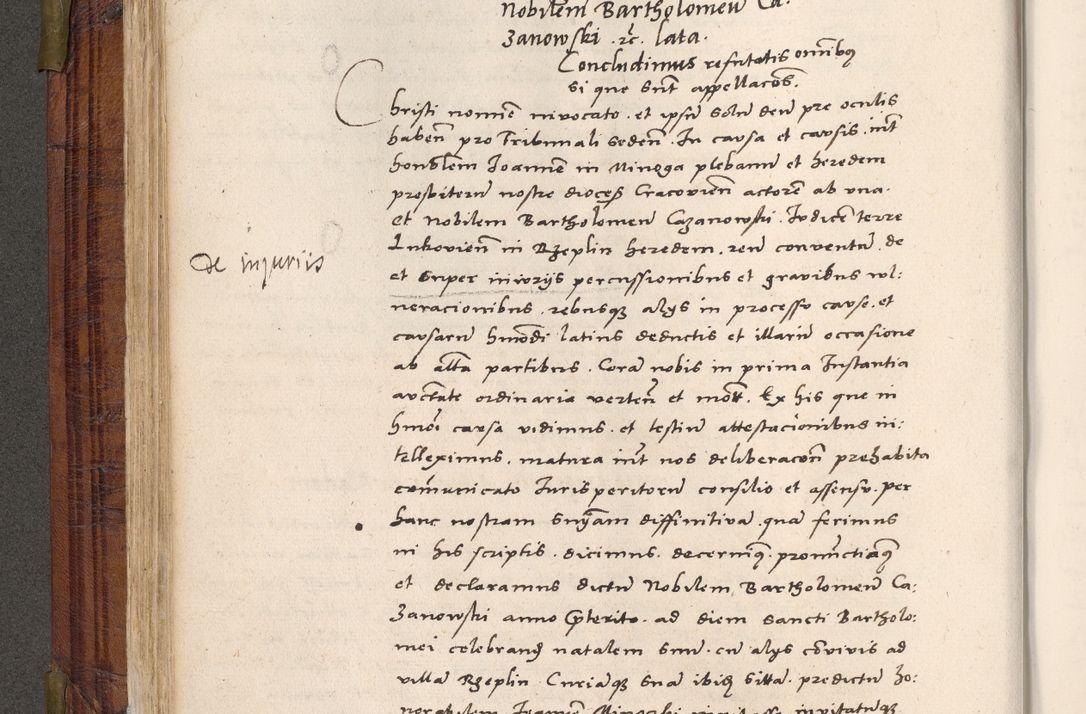 Nobilem Bartholomeu Ca:
Zanowski .rc̃. lata.
Concludimus refutatis om̃ibꝫ
si que sũt appellacões.
Christi nomĩe invocato. et ipsũ solũ deũ pre oculis
habeñ pro Tribunali sedeñ. In causa et causis. iñt
honoblem Joannẽ in Minoga plebanũ et heredem
presbiterũ nostre dioceẽ Cracovieñ actorẽ ab vna.
et Nobilem Bartholomeũ Cazanowski. Judicẽ terre
Lukovieñ in Rzeplin heredem. reũ conventũ. de
de iniuriis
et super iniurijs percussionibus et gravibus vl:
neracionibus. rebusqꝫ alijs in processu cause. et
causarũ hmõdi latius deductis et illarũ occasione
ab alťa partibus. Corã nobis in prima Instantia
auctťate ordinaria verteñ et moťt. Ex his que in
hmõi causa vidimus. et testiũ attestacionibus in:
telleximus. matura iñt nos deliberacoñ prehabita
com̃unicato Jurisperitorũ consilio et assensu. per
hanc nostram sñiam diffinitivã. quã ferimus
in his scriptis. dicimus. decernimꝫ. pronũctiamꝫ
et declaramus dictũ Nobilem Bartholomeũ Ca:
Zanowski anno p̃terito. ad diem sancti Bartholo:
mei celebrand natalem suũ. cũ alijs cõvivis ad
villã Rzeplin Curiãqꝫ suã ibidꝫ sittã. predictũ ho:
norabilem Joannẽ